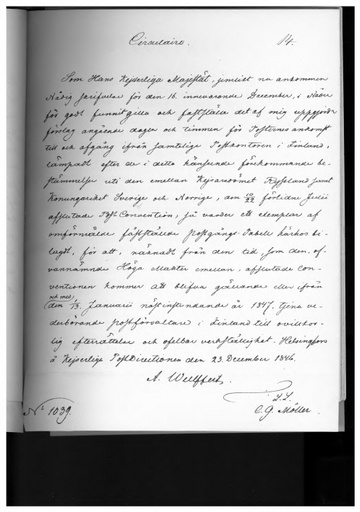 Circulaire.
14.
Som Hans Kejserliga Majestät, jemlikt nu ankommen
Nådig skrifvelse för den 16 innevarande December, i Nåder
för godt funnit gilla och fastställa det af mig uppgjorde
förslag angående dagar och timmar för Posternes ankomst
till och afgång ifrån samtlige Postkontoren i Finland,
lämpadt efter de i detta hänseende förekommande be-
stämmelser uti den emellan Kejsaredömet Ryssland samt
Konungariket Sverige och Norrige, den förliden Julii
afslutade Post Convention, så varder ett exemplar af
omförmälde fastställde postgångs-Tabell härhos bi-
lagt, för att, räknadt från den tid, som den, of-
vannämnde Höga Makter emellan, afslutade con-
ventionen kommer att blifva gällande eller ifrån
och med
den 1/13 Januarii nästinstundande år 1847, tjena ve-
derbörande postförvaltare i Finland till ovilkor-
lig efterrättelse och ofelbar verkställighet. Helsingfors
å Kejserliga Postdirectionen den 23 December 1846.
A. Wulffert.
C. G. Möller.
No 1039